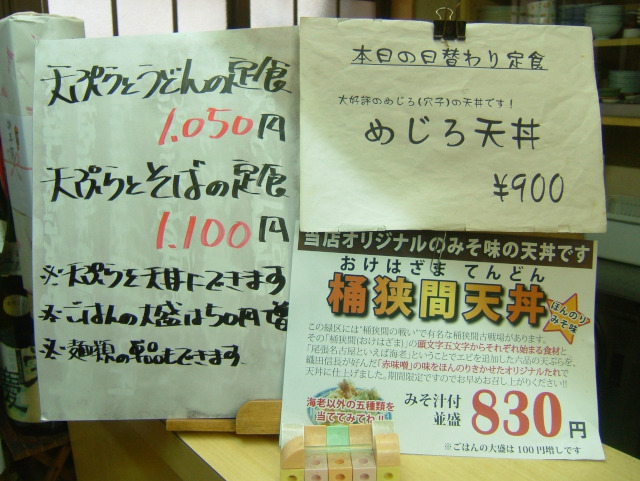 天ぷらとうどんの定食
1.050円
天ぷらとそばの定食
1.100円
※天ぷらを天丼にできます
※ごはんの大盛は50円増
※麺類の単品もできます
本日の日替わり定食
大好評のめじろ(穴子)の天丼です!
めじろ天丼
¥900
当店オリジナルのみそ味の天丼です
おけはざま てんどん
桶狭間天丼
ほんのりみそ味
この緑区には"桶狭間の戦い"で有名な桶狭間古戦場があります。
その「桶狭間(おけはざま)」の頭文字五文字からそれぞれ始まる食材と
「尾張名古屋といえば海老」ということでエビを追加した六品の天ぷらを、
織田信長が好んだ「赤味噌」の味をほんのりきかせたオリジナルたれで
天丼に仕上げました。期間限定ですのでお早めお召し上がりください!!
海老以外の五種類を
当ててみてね!!
みそ汁付
並盛 830円
※ごはんの大盛は100円増しです